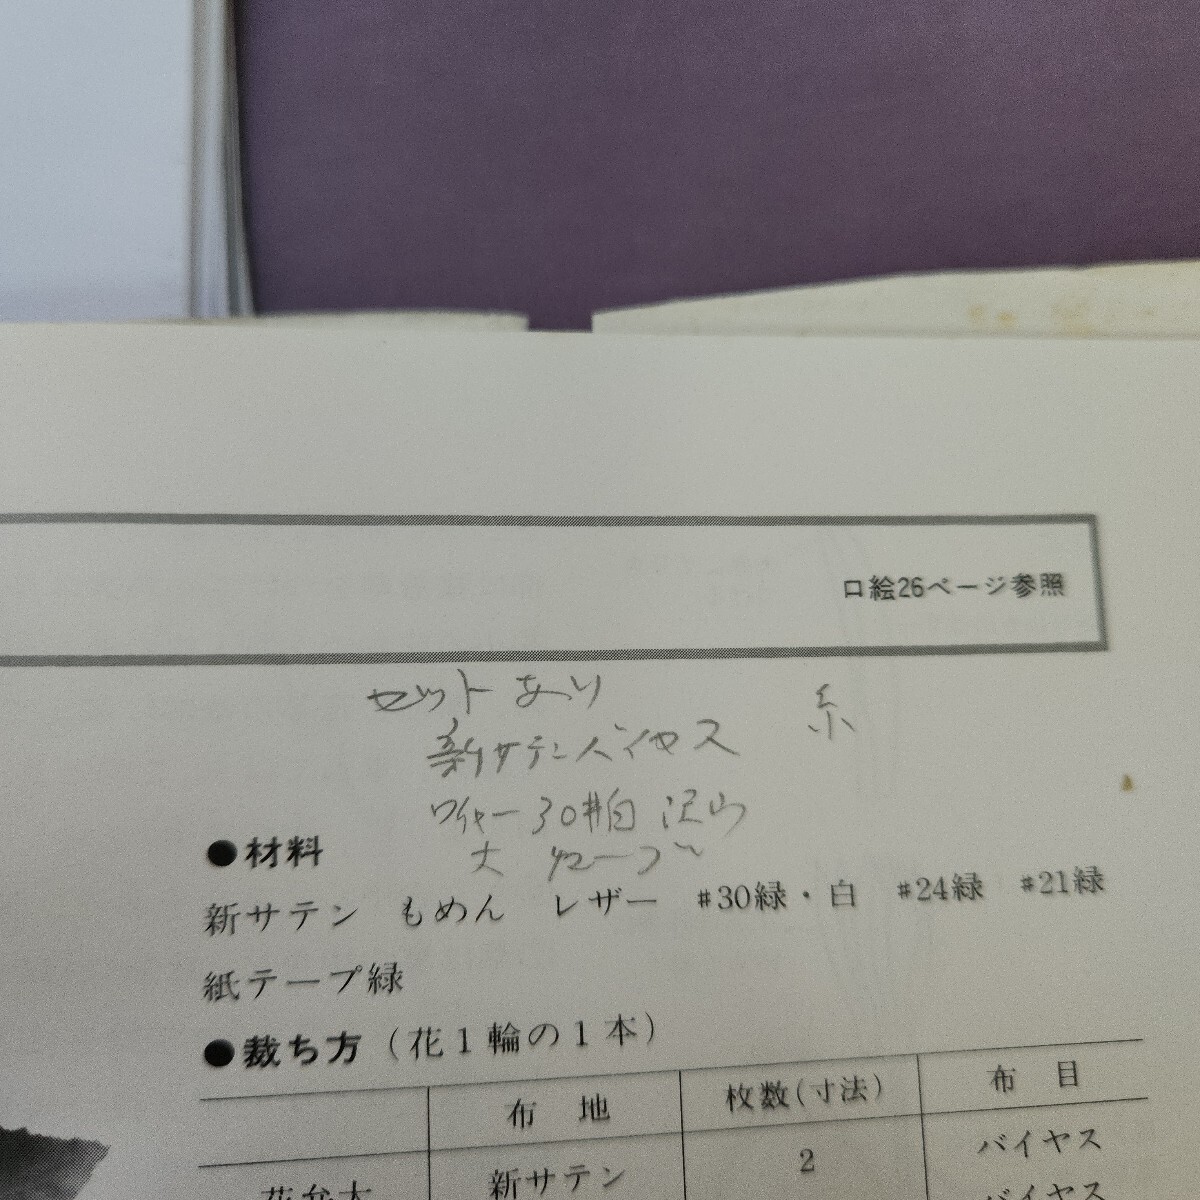 口絵26ページ参照
セットあり 糸
新サテンバイヤス
ワイヤー30#白 沢山
大
●材料
新サテン もめん レザー #30緑・白 #24緑 #21緑
紙テープ緑
●裁ち方(花1輪の1本)
布地 枚数(寸法) 布目
新サテン 2 バイヤス
花弁大 バイヤス